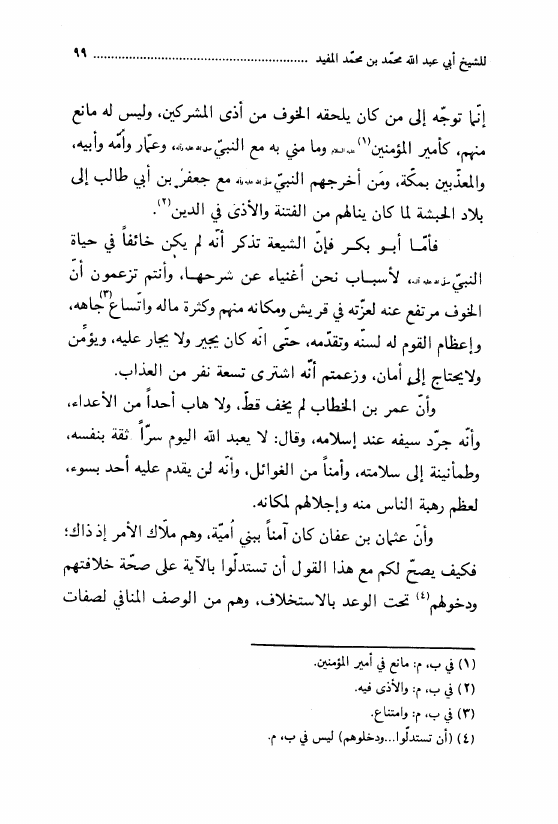 للشيخ أبي عبد الله محمّد بن محمّد المفيد ........................................................ ٩٩
إنّما توجّه إلى من كان يلحقه الخوف من أذى المشركين، وليس له مانع
منهم، كأمير المؤمنين(١) عليه السلام وما مني به مع النبيّ صلى الله عليه وآله، وعمّار وأُمّه وأبيه،
والمعذّبين بمكّة، ومَن أخرجهم النبيّ صلى الله عليه وآله مع جعفر بن أبي طالب إلى
بلاد الحبشة لما كان ينالهم من الفتنة والأذى في الدين(٢).
فأمّا أبو بكر فإنّ الشيعة تذكر أنّه لم يكن خائفاً في حياة
النبيّ صلى الله عليه وآله، لأسباب نحن أغنياء عن شرحها، وأنتم تزعمون أنّ
الخوف مرتفع عنه لعزّته في قريش ومكانه منهم وكثرة ماله واتّساع(٣) جاهه،
وإعظام القوم له لسنّه وتقدّمه، حتّى انّه كان يجير ولا يجار عليه، ويؤمّن
ولايحتاج إلى أمان، وزعمتم أنّه اشترى تسعة نفر من العذاب.
وأنّ عمر بن الخطاب لم يخف قطّ، ولا هاب أحداً من الأعداء،
وأنّه جرّد سيفه عند إسلامه، وقال: لا يعبد الله اليوم سرّاً ثقة بنفسه،
وطمأنينة إلى سلامته، وأمناً من الغوائل، وأنّه لن يقدم عليه أحد بسوء،
لعظم رهبة الناس منه وإجلالهم لمكانه.
وأنّ عثمان بن عفان كان آمناً ببني أُميّة، وهم ملّاك الأمر إذ ذاك؛
فكيف يصحّ لكم مع هذا القول أن تستدلّوا بالآية على صحّة خلافتهم
ودخولهم(٤) تحت الوعد بالاستخلاف، وهم من الوصف المنافي لصفات
(١) في ب، م: مانع في أمير المؤمنين.
(٢) في ب، م: والأذى فيه.
(٣) في ب، م: وامتناع.
(٤) (أن تستدلّوا...ودخلوهم) ليس في ب، م.